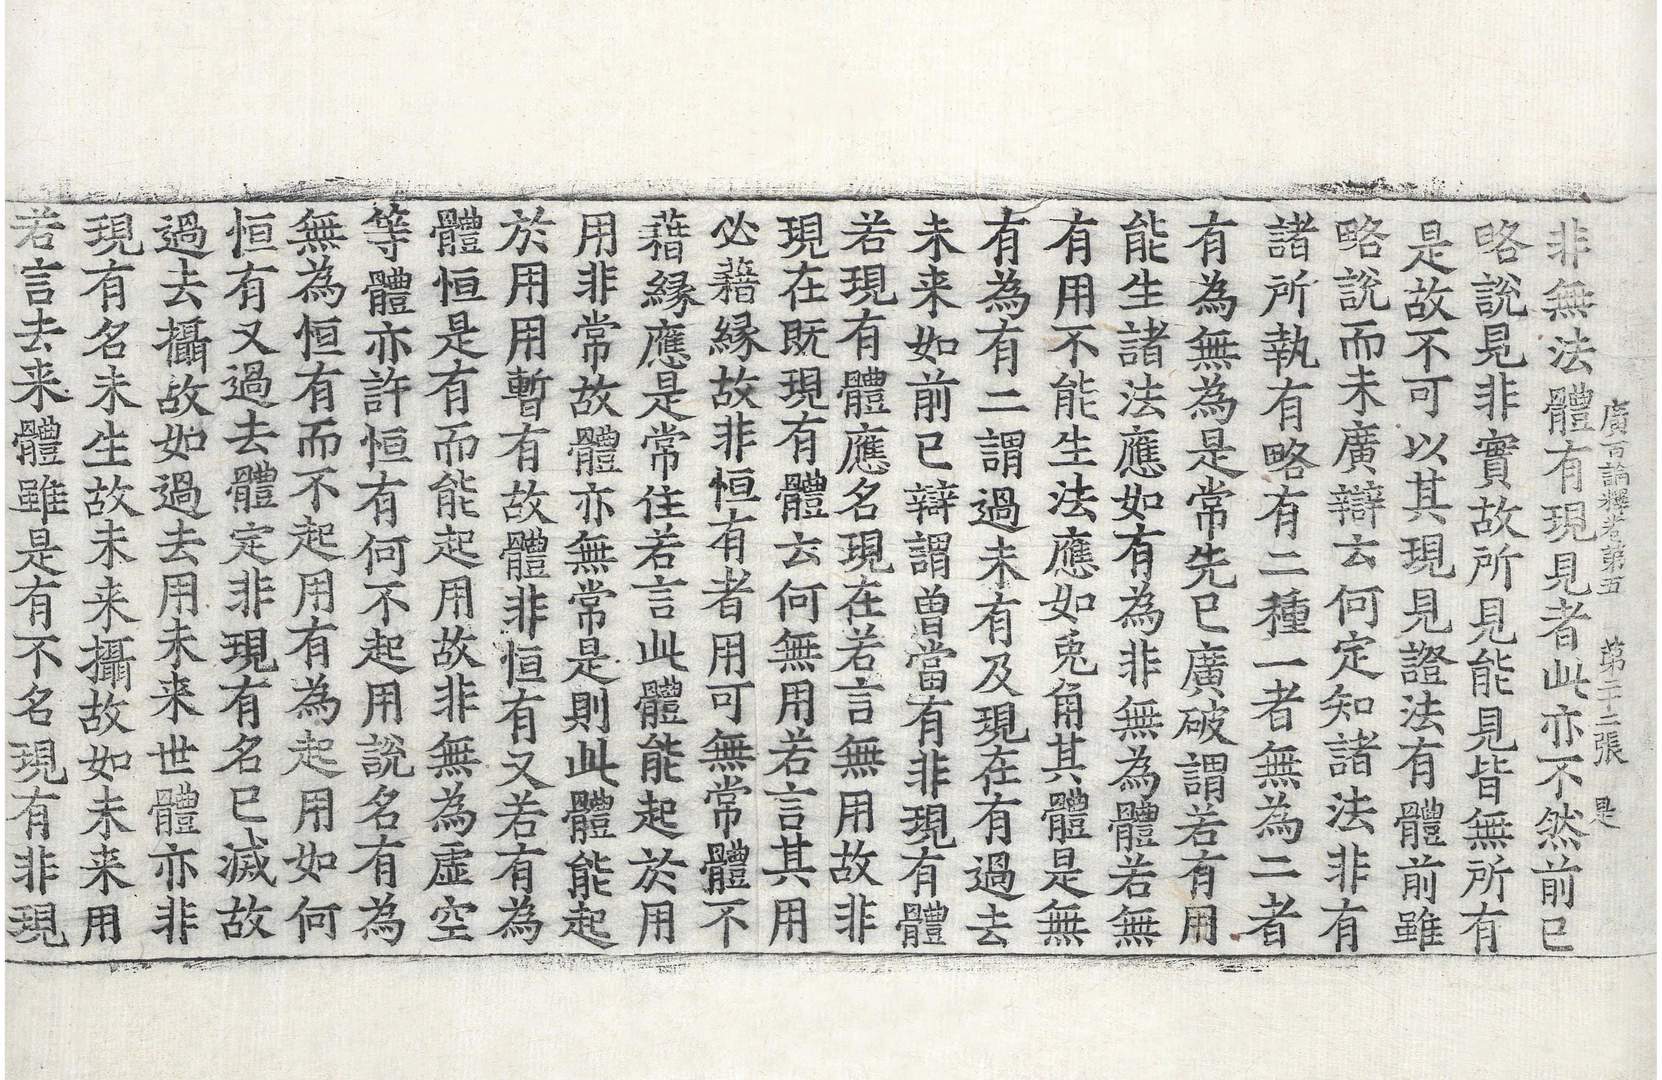 廣百論釋卷第五　第二十二張　是
非無法體有現見者此亦不然前已
略說見非實故所見能見皆無所有
是故不可以其現見證法有體前雖
略說而未廣辯云何定知諸法非有
諸所執有略有二種一者無為二者
有為無為是常先已廣破謂若有用
能生諸法應如有為非無為體若無
有用不能生法應如兎角其體是無
有為有二謂過未有及現在有過去
未来如前已辯謂曾當有非現有體
若現有體應名現在若言無用故非
現在既現有體云何無用若言其用
必藉緣故非恒有者用可無常體不
藉緣應是常住若言此體能起於用
用非常故體亦無常是則此體能起
於用用暫有故體非恒有又若有為
體恒是有而能起用故非無為虛空
等體亦許恒有何不起用說名有為
無為恒有而不起用有為起用如何
恒有又過去體定非現有名已滅故
過去攝故如過去用未来世體亦非
現有名未生故未来攝故如未来用
若言去来體雖是有不名現有非現